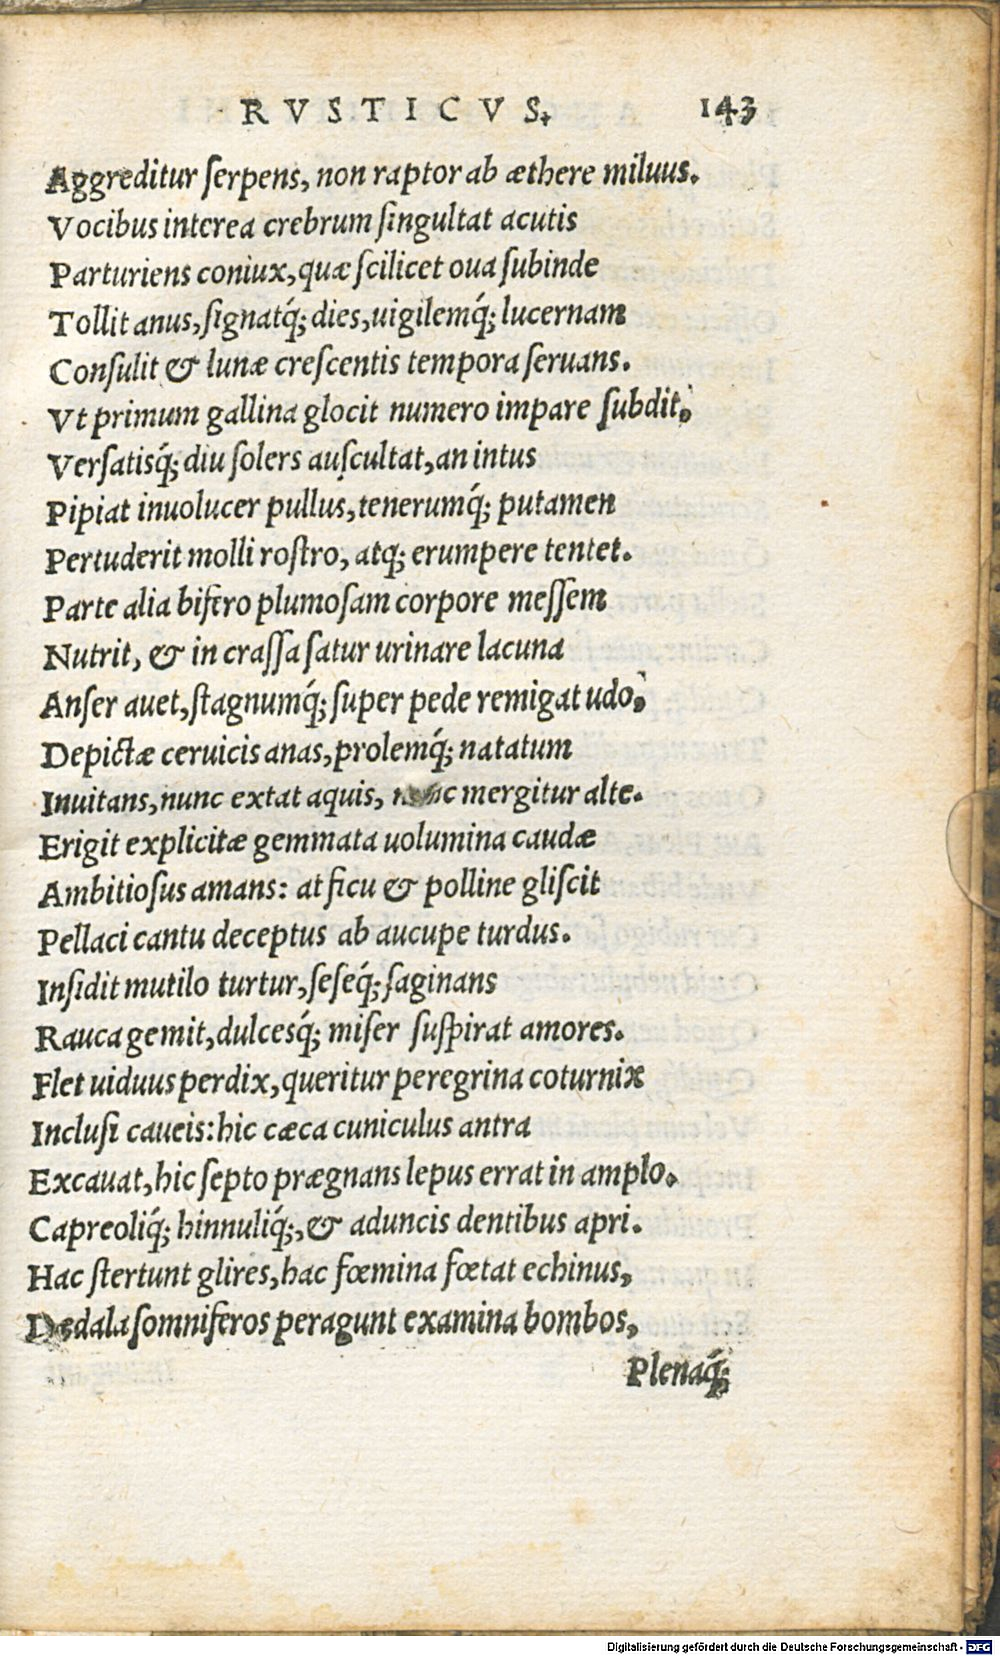 RVSTICVS. 143
Aggreditur ſerpens, non raptor ab æthere miluus.
Vocibus interea crebrum ſingultat acutis
Parturiens coniux, quæ ſcilicet oua ſubinde
Tollit anus, ſignatq́; dies, uigilemq́; lucernam
Conſulit & lunæ creſcentis tempora ſeruans.
Vt primum gallina glocit numero impare ſubdit.
Verſatisq́; diu ſolers auſcultat, an intus
Pipiat inuolucer pullus, tenerumq́; putamen
Pertuderit molli roſtro, atq; erumpere tentet.
Parte alia bifero plumoſam corpore meſſem
Nutrit, & in craſſa ſatur urinare lacuna
Anſer auet, ſtagnumq́; ſuper pede remigat udo,
Depictæ ceruicis anas, prolemq́; natatum
Inuitans, nunc extat aquis, mergitur alte.
Erigit explicitæ gemmata uolumina caudæ
Ambitioſus amans: at ficu & polline gliſcit
Pellaci cantu deceptus ab aucupe turdus.
Inſidit mutilo turtur, ſeſeq́; ſaginans
Rauca gemit, dulcesq́; miſer ſuſpirat amores.
Flet uiduus perdix, queritur peregrina coturnix
Incluſi caueis: hic cæca cuniculus antra
Excauat, hic ſepto prægnans lepus errat in amplo.
Capreoliq́; hinnuliq́;, & aduncis dentibus apri.
Hac ſtertunt glires, hac fœmina fœtat echinus,
Dædala ſomniferos peragunt examina bombos,
Plenaq́;
Digitalisierung gefördert durch die Deutsche Forschungsgemeinschaft - DFG